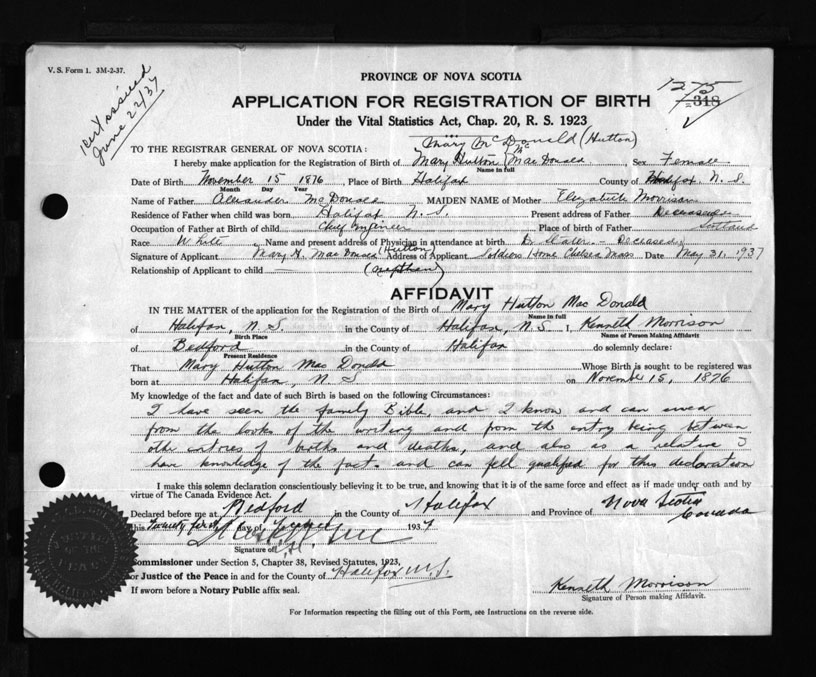 V. S. Form 1. 3M-2-37.
Cert issued
June 22/37
PROVINCE OF NOVA SCOTIA
1275
318
APPLICATION FOR REGISTRATION OF BIRTH
Under the Vital Statistics Act, Chap. 20, R. S. 1923
Mary McDonald (Hutton)
TO THE REGISTRAR GENERAL OF NOVA SCOTIA:
I hereby make application for the Registration of Birth of Mary Hutton MacDonald, Sex Female
Name in full
Date of Birth November 15 1876, Place of Birth Halifax County of Halifax, N. S.
Month Day Year
Name of Father Alexander McDonald MAIDEN NAME of Mother Elizabeth Morrison
Residence of Father when child was born Halifax N. S. Present address of Father Deceased
Occupation of Father at Birth of child Chief Engineer Place of birth of Father Scotland
Race White Name and present address of Physician in attendance at birth Dr. Slater Deceased
(Hutton)
Signature of Applicant Mary H. MacDonald Address of Applicant Soldiers Home Chelsea Mass Date May 31, 1937
Relationship of Applicant to child
AFFIDAVIT
IN THE MATTER of the application for the Registration of the Birth of Mary Hutton Mac Donald
Name in full
of Halifax, N. S. in the County of Halifax, N. S I, Kenneth Morrison
Birth Place Name of Person Making Affidavit
of Bedford in the County of Halifax do solemnly declare:
Present Residence
That Mary Hutton Mac Donald Whose Birth is sought to be registered was
born at Halifax, N. S on November 15, 1876
My knowledge of the fact and date of such Birth is based on the following Circumstances:
I have seen the family Bible, and I know and can swear
from the looks of the writing and from the entry being between
other entries of births and deaths, and also as a relative I
have knowledge of the facts and can fell qualified for this declaration
I make this solemn declaration conscientiously believing it to be true, and knowing that it is of the same force and effect as if made under oath and by
virtue of The Canada Evidence Act.
Declared before me at Bedford in the County of Halifax and Province of Nova Scotia
Canada
this Twenty first day of 1937
Signature of
Commissioner under Section 5, Chapter 38, Revised Statutes, 1923,
or Justice of the Peace in and for the County of Halifax N. S.
If sworn before a Notary Public affix seal.
Kenneth Morrison
Signature of Person making Affidavit.
For Information respecting the filling out of this Form, see Instructions on the reverse side.